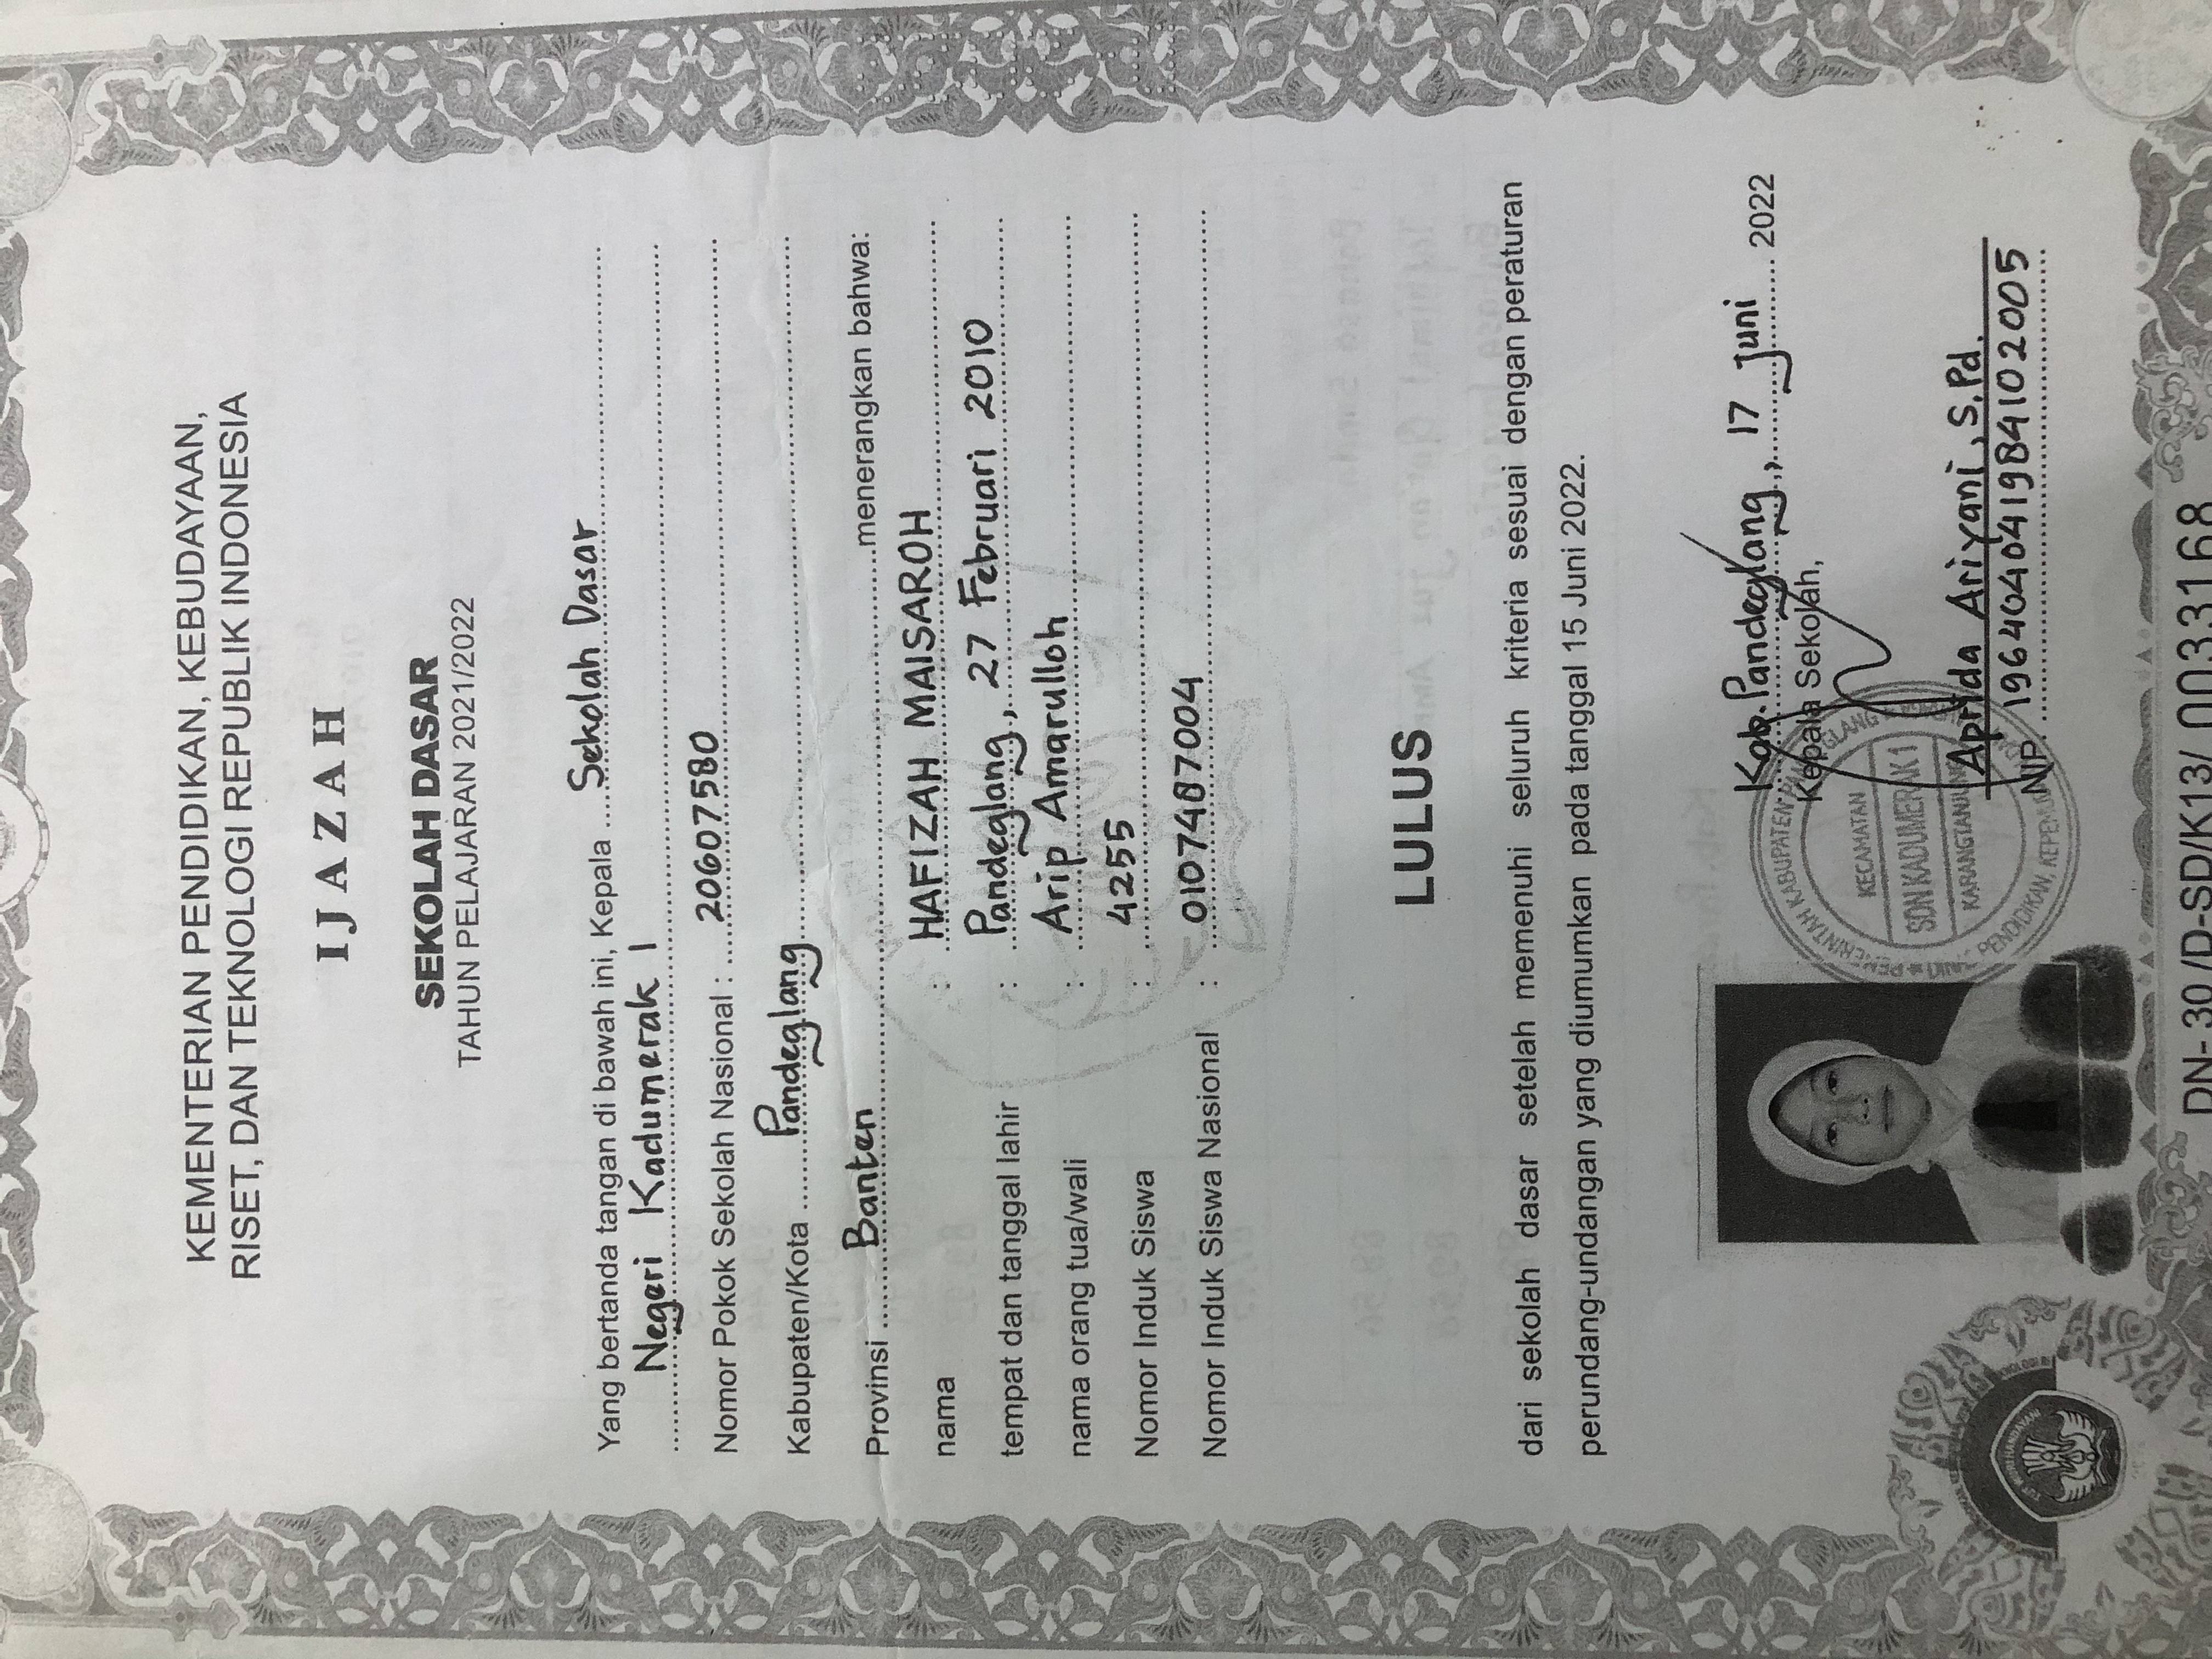 KEMENTERIAN PENDIDIKAN, KEBUDAYAAN,
RISET, DAN TEKNOLOGI REPUBLIK INDONESIA
IJAZAH
SEKOLAH DASAR
TAHUN PELAJARAN 2021/2022
Yang bertanda tangan di bawah ini, Kepala Sekolah Dasar
Negeri Kadumerak 1
Nomor Pokok Sekolah Nasional : 20607580
Kabupaten/Kota Pandeglang
Provinsi Banten menerangkan bahwa:
nama : HAFIZAH MAISAROH
tempat dan tanggal lahir : Pandeglang, 27 Februari 2010
nama orang tua/wali : Arip Amarulloh
Nomor Induk Siswa : 4255
Nomor Induk Siswa Nasional : 0107487004
LULUS
dari sekolah dasar setelah memenuhi seluruh kriteria sesuai dengan peraturan
perundang-undangan yang diumumkan pada tanggal 15 Juni 2022.
Kab. Pandeglang, 17 Juni 2022
Kepala Sekolah,
PEMERINTAH KABUPATEN PANDEGLANG
KECAMATAN
SDN KADUMERAK 1
KARANGTANJUNG
Aprida Ariyani, S.Pd.
NIP. 196404041984102005
TUT WURI HANDAYANI
DN- 30 /D-SD/K13/ 0033168